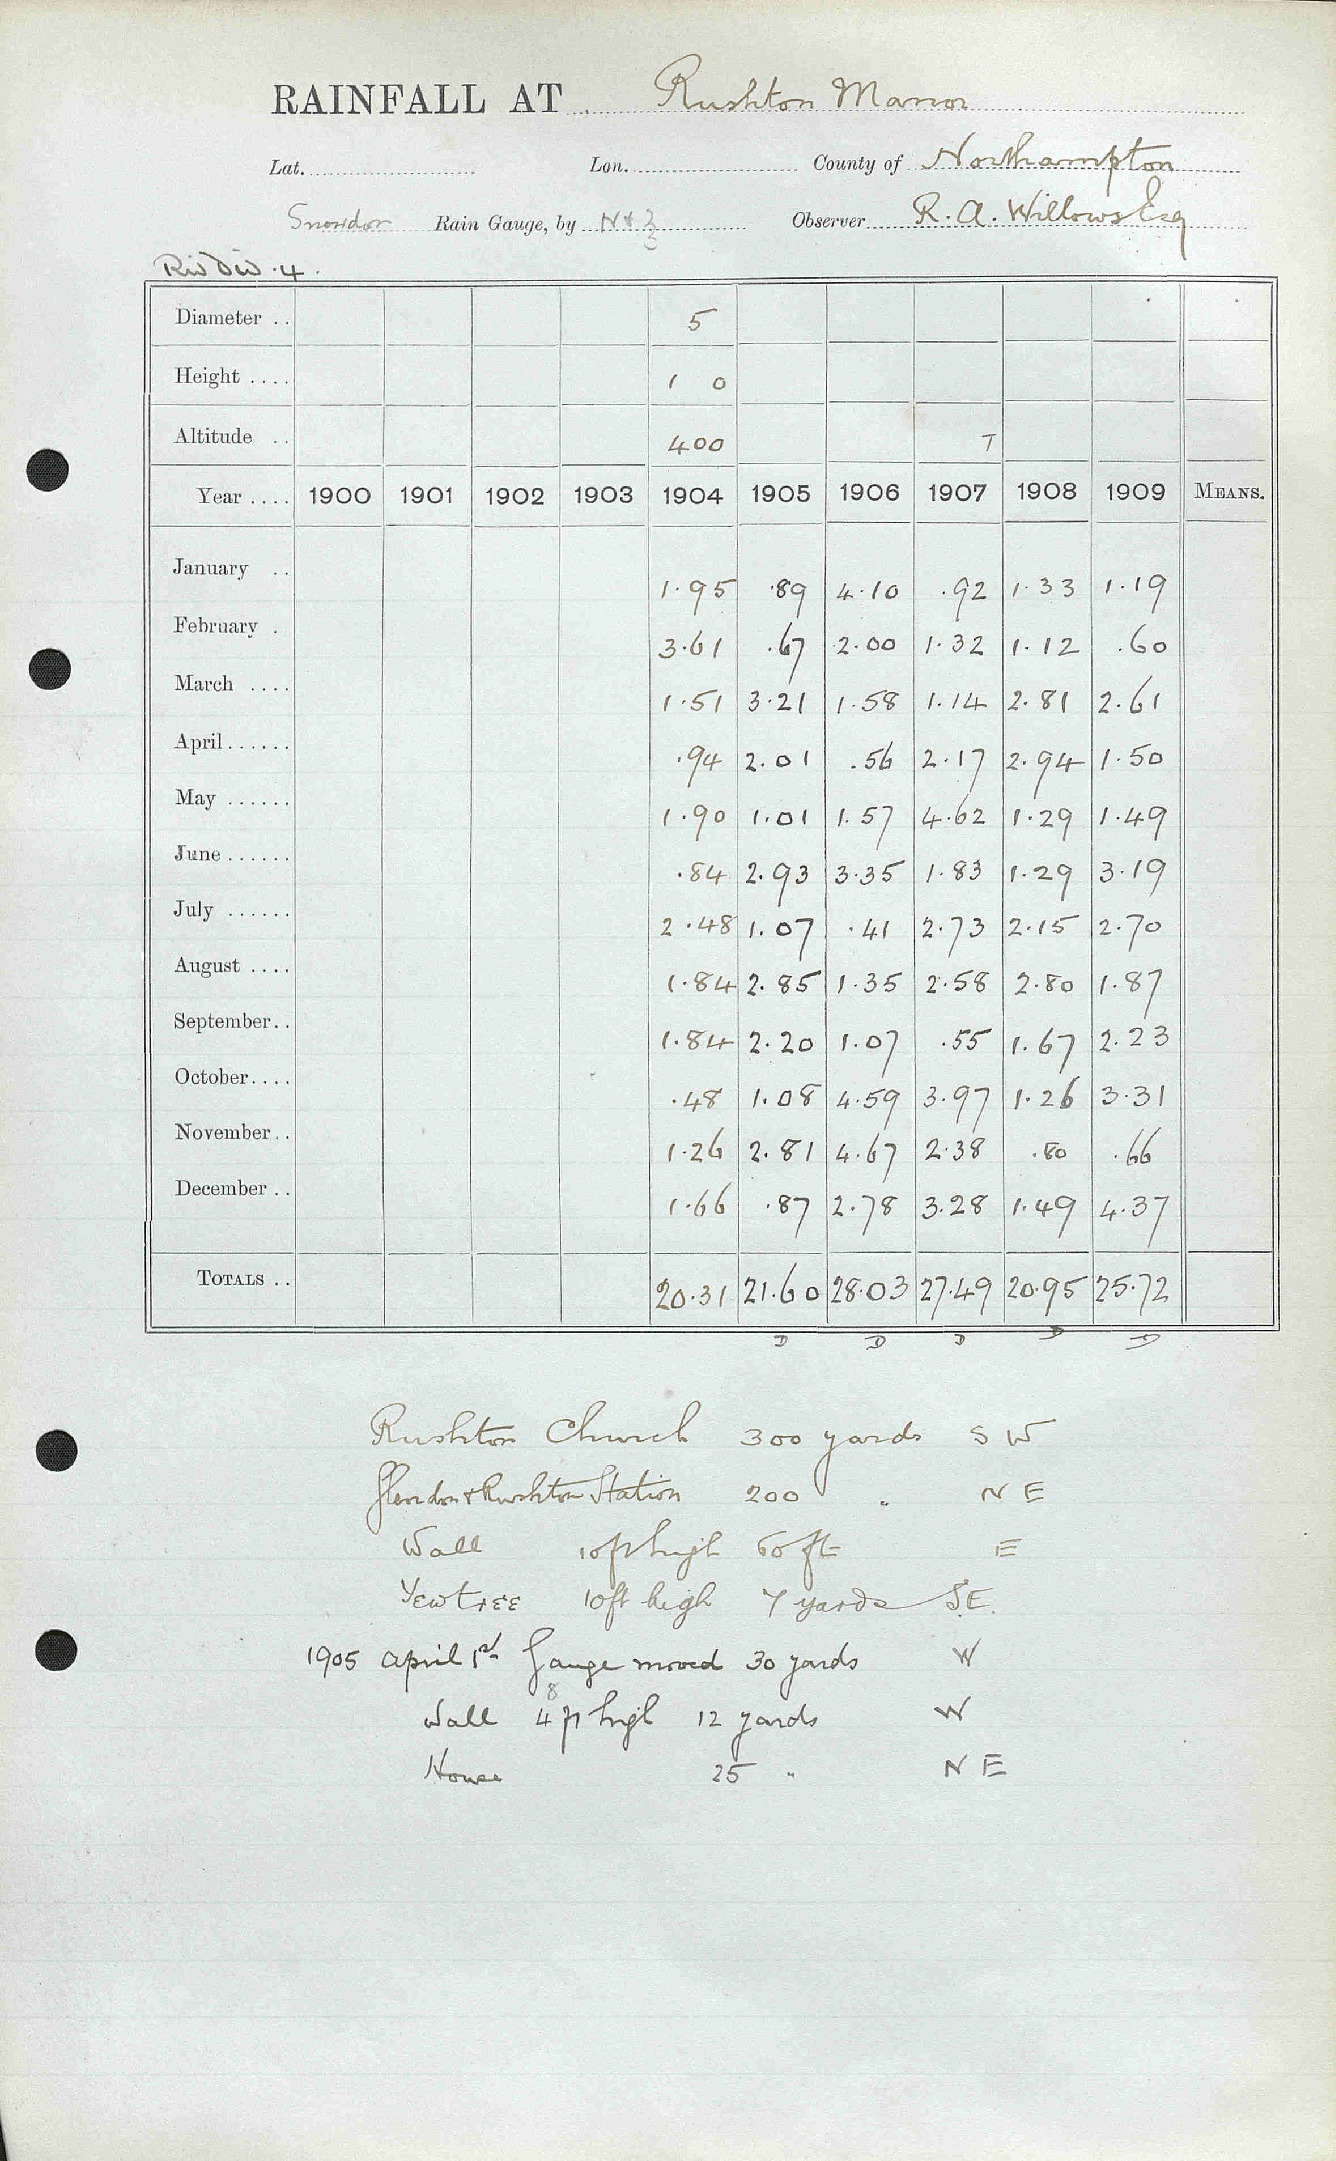 RAINFALL AT Rushton Manor
Lat. Lon. County of Northampton
Snowdon Rain Gauge, by N & Z Observer R. A. Willows Esq
Riv Div. 4.
Diameter .. 5
Height .... 1 0
Altitude .. 400 T
Year .... 1900 1901 1902 1903 1904 1905 1906 1907 1908 1909 MEANS.
January .. 1.95 .89 4.10 .92 1.33 1.19
February . 3.61 .67 2.00 1.32 1.12 .60
March .... 1.51 3.21 1.58 1.14 2.81 2.61
April...... .94 2.01 .56 2.17 2.94 1.50
May ...... 1.90 1.01 1.57 4.62 1.29 1.49
June...... .84 2.93 3.35 1.83 1.29 3.19
July ...... 2.48 1.07 .41 2.73 2.15 2.70
August .... 1.84 2.85 1.35 2.58 2.80 1.87
September.. 1.84 2.20 1.07 .55 1.67 2.23
October.... .48 1.08 4.59 3.97 1.26 3.31
November.. 1.26 2.81 4.67 2.38 .80 .66
December .. 1.66 .87 2.78 3.28 1.49 4.37
TOTALS .. 20.31 21.60 28.03 27.49 20.95 25.72
D D D D D
Rushton Church 300 yards S W
Glendon & Rushton Station 200 " N E
Wall 10ft high 60 ft E
Yewtree 10ft high 7 yards S.E.
1905 April 1st Gauge moved 30 yards W
8
Wall 4 ft high 12 yards W
House 25 " N E